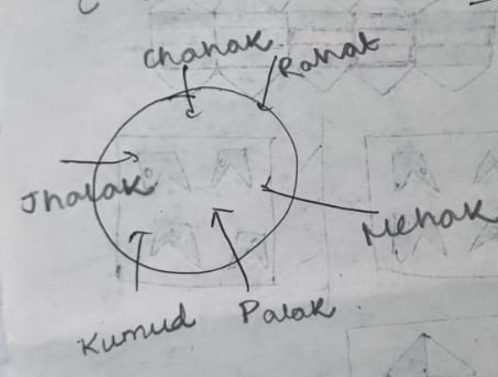 Chahak
Rahat
Jhalak
Mehak
Kumud
Palak